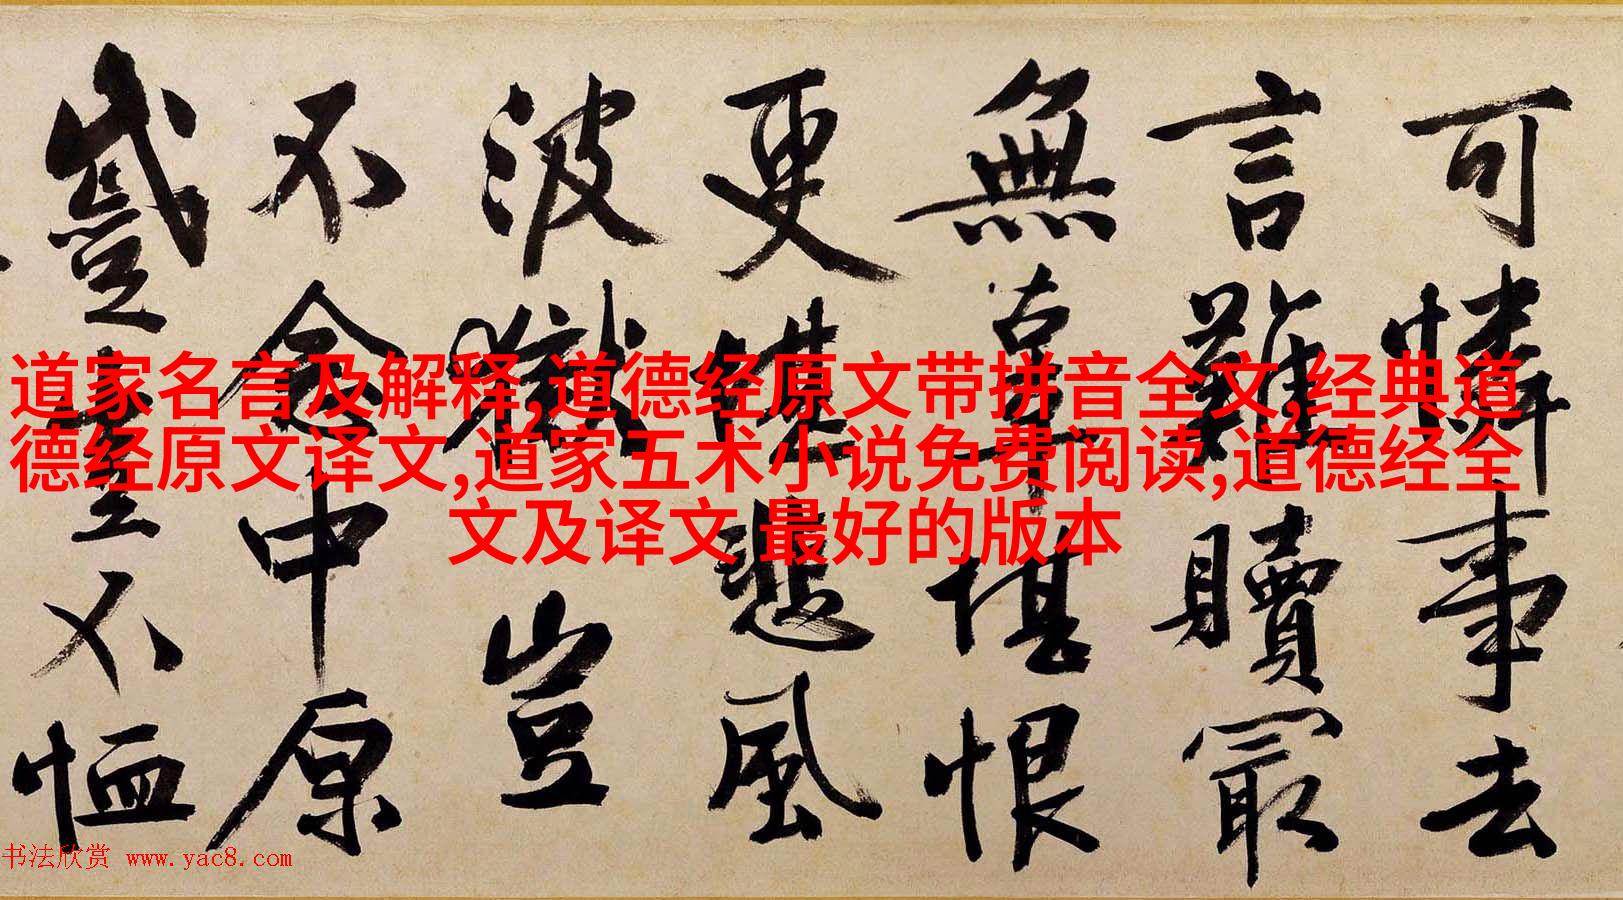 可憐事去
言難贖冣
無辜堪恨
更堪悲風
波獄豈
不念中原
蹙豈不恤
道家名言及解释,道德经原文带拼音全文,经典道
德经原文译文,道家五术小说免费阅读,道德经全
文及译文 最好的版本
书法欣赏 www.yac8.com